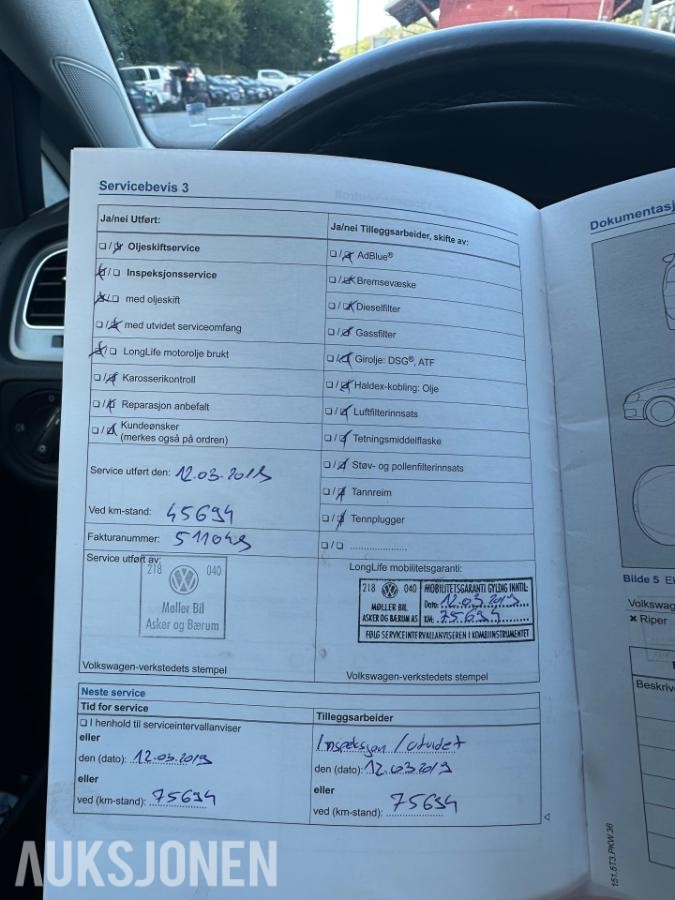 Servicebevis 3
Ja/nei Utført:
Ja/nei Tilleggsarbeider, skifte av:
Oljeskiftservice
Inspeksjonsservice
med oljeskift
med utvidet serviceomfang
LongLife motorolje brukt
Karosserikontroll
Reparasjon anbefalt
Kundeønsker
(merkes også på ordren)
AdBlue®
Bremsevæske
Dieselfilter
Gassfilter
Girolje: DSG®, ATF
Haldex-kobling: Olje
Luftfilterinnsats
Tetningsmiddelflaske
Støv- og pollenfilterinnsats
Tannreim
Tennplugger
Service utført den: 12.03.2019
Ved km-stand: 45694
Fakturanummer: 511049
Service utført av:
218 040
Møller Bil
Asker og Bærum
Volkswagen-verkstedets stempel
LongLife mobilitetsgaranti:
218 040
MØLLER BIL
ASKER OG BÆRUM AS
MOBILITETSGARANTI GYLDIG INNTIL:
Dato: 12.03.2019
KM: 75694
FØLG SERVICEINTERVALLANVISEREN I KOMBIINSTRUMENTET
Volkswagen-verkstedets stempel
Neste service
Tid for service
I henhold til serviceintervallanviser
eller
den (dato): 12.03.2019
eller
ved (km-stand): 75694
Tilleggsarbeider
Inspeksjon/utvidet
den (dato): 12.03.2019
eller
ved (km-stand): 75694
Dokumentasj
Bilde 5
Volkswag
Riper
Beskriv
151.5T3.PKW.36
AUKSJONEN